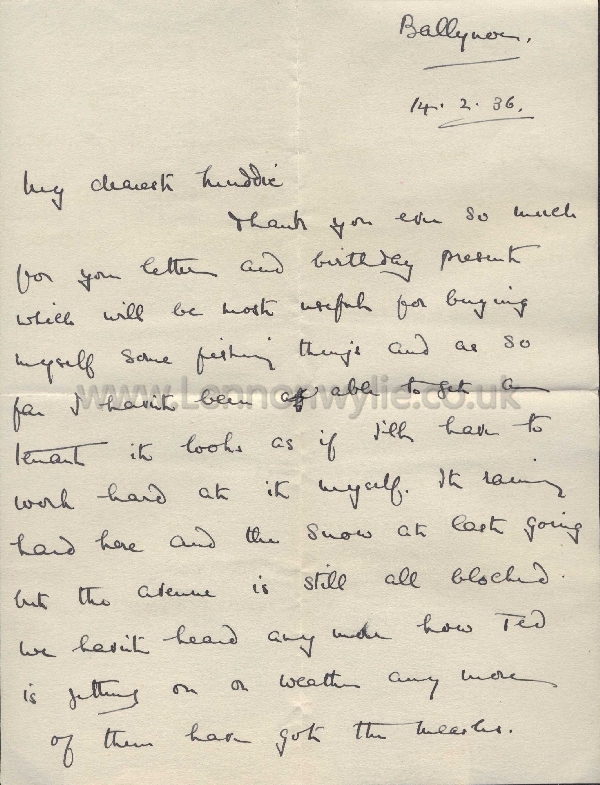 Ballynoe.
14. 2. 36.
My dearest Muddie
Thank you ever so much
for your letter and birthday present
which will be most useful for buying
myself some fishing things and as so
far I havn't been able to get a
tenant it looks as if I'll have to
work hard at it myself. Its raining
hard here and the snow at last going
but the avenue is still all blocked.
we havn't heard any more how Ted
is getting on or weather any more
of them have got the measles.
www.Lennonwylie.co.uk